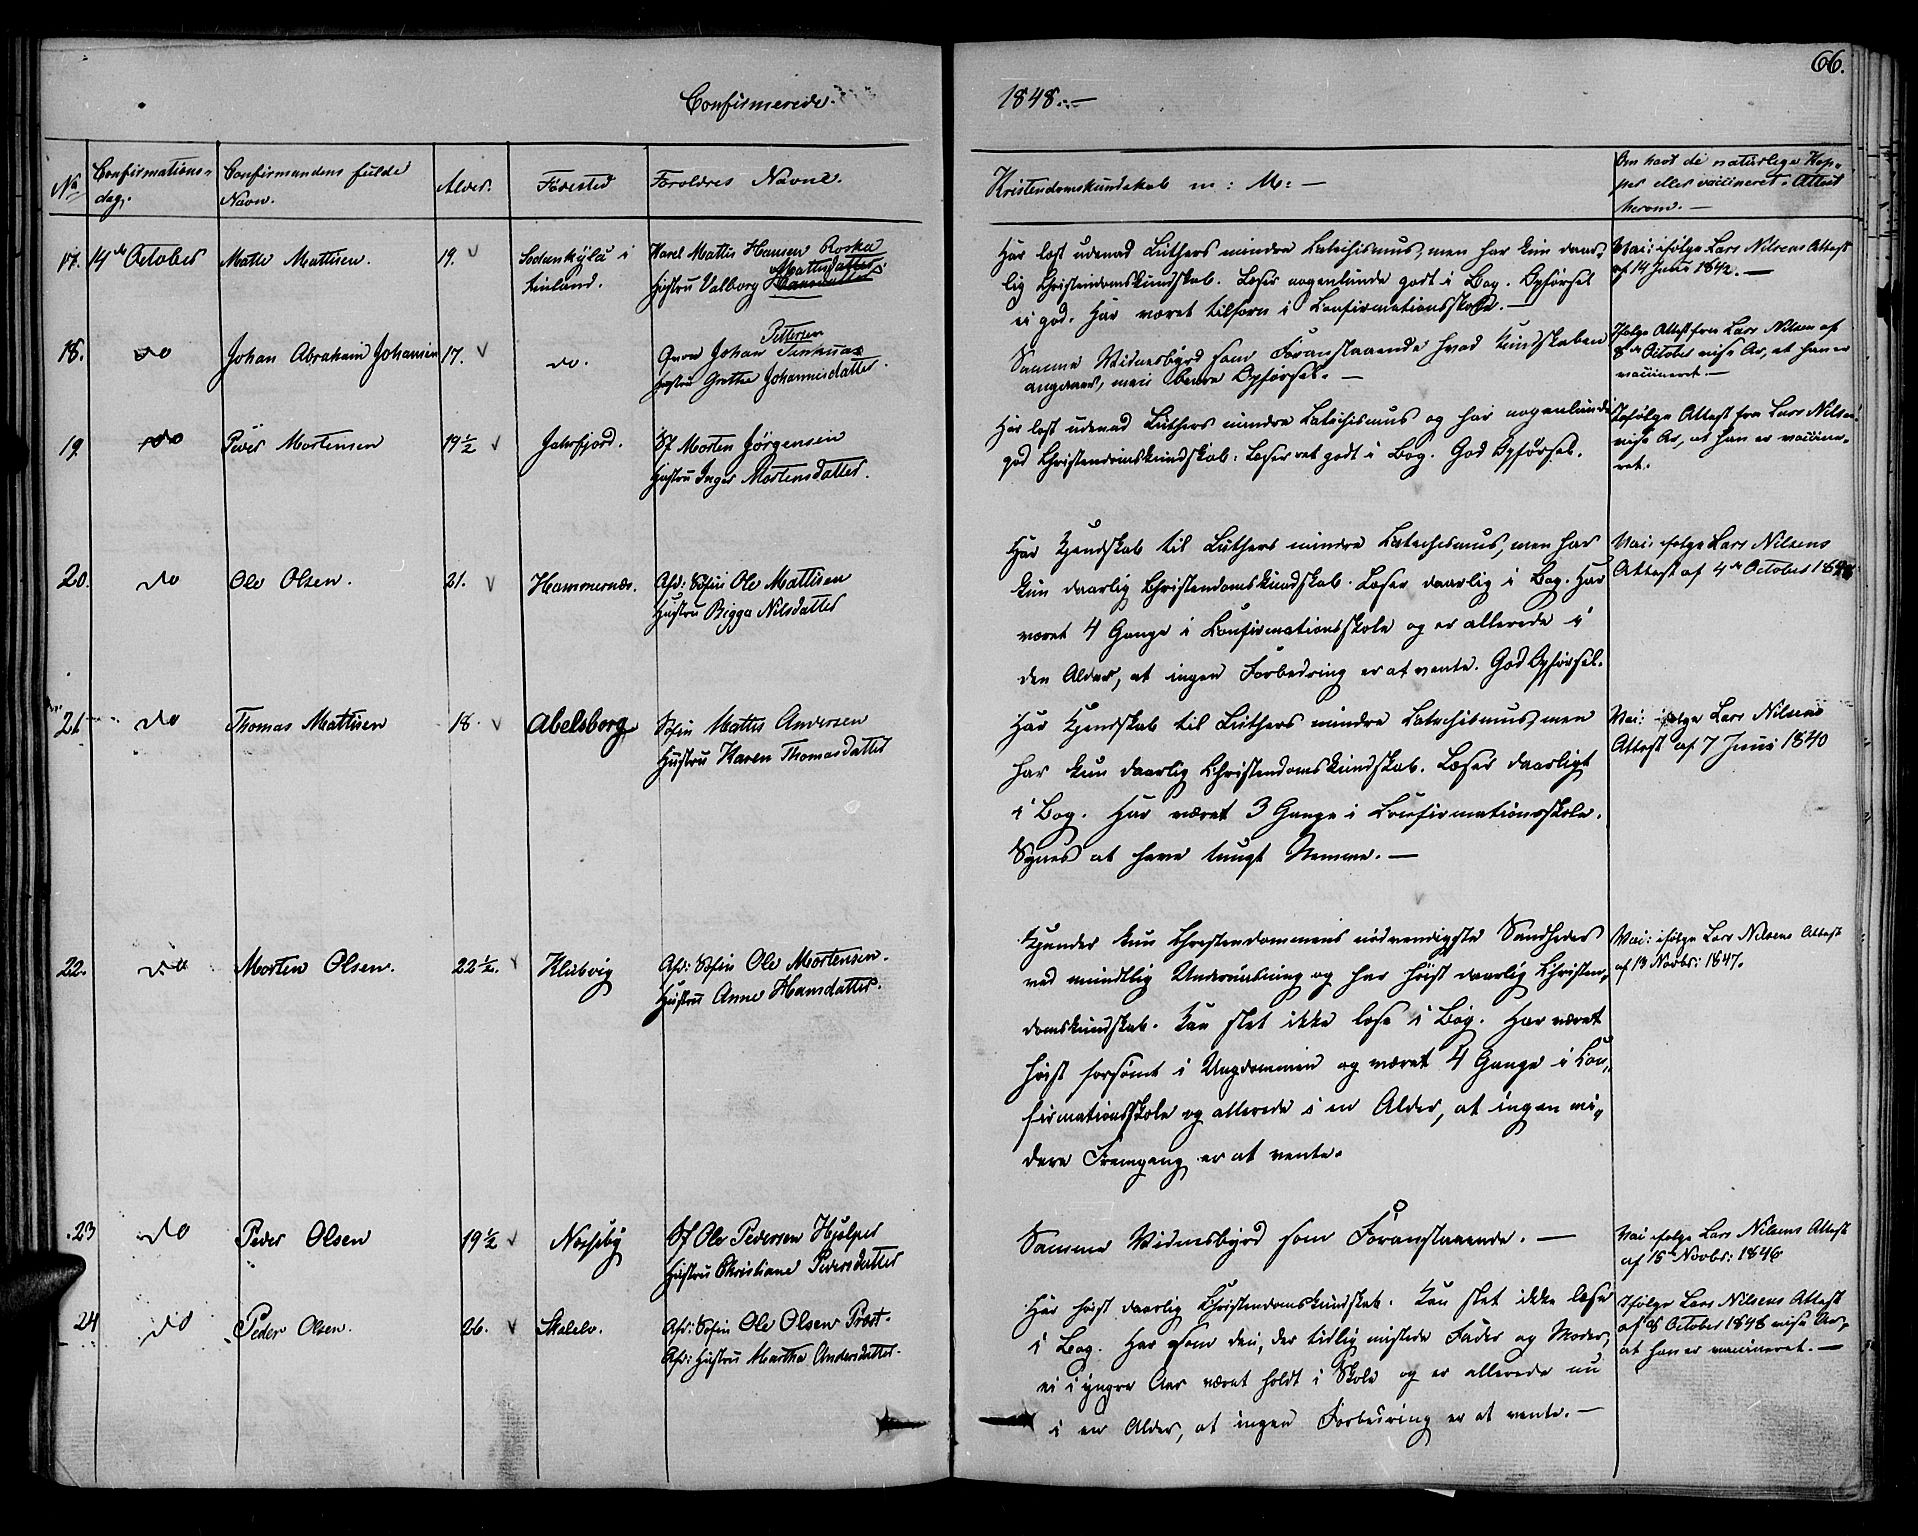 66.
Confirmerede
1848.
No
Confirmations-
dag.
Confirmandens fulde
Navn.
Alder.
Fødested
Foreldres Navne.
Kristendomskundskab m: M:
Om havt de naturlige Kop-
per eller vaccineret. Attest
herom.
17.
14de October
Mathe Mattisen.
19.
Sodankylä i
Finland.
Mattis Hansen Roska
Mattisdatter
Hustru Valborg Hansdatter
Har læst udenad Luthers mindre Catechismus, men har kun daar-
lig Christendomskundskab. Læser nogenlunde godt i Bog. Opførsel
ei god. Har været tilforn i Confirmationsskole.
Vac: ifølge Lars Nilsens Attest
af 14 Juni 1842.
18.
do
Johan Abraham Johansen
17.
do.
Pettersen
Johan
Hustru Grethe Johannisdatter.
Samme Vidnesbyrd som Foranstaaende hvad Kundskaben
angaaer, men bedre Opførsel.
Ifølge Attest fra Lars Nilsen af
8de October vise Ar, at han er
vaccineret.
19.
do
Peder Mortensen
19½
Jarfjord.
Sf Morten Jørgensen
Hustru Inger Mortensdatter.
Har læst udenad Luthers mindre Catechismus og har nogenlunde
god Christendomskundskab. Læser ret godt i Bog. God Opførsel.
Ifølge Attest fra Lars Nilsen
vise Ar, at han er vaccine-
ret.
20.
do
Ole Olsen.
21.
Hammernæs.
Afd: Søfin Ole Mattisen
Hustru Bigga Nilsdatter
Har Kjendskab til Luthers mindre Catechismus, men har
kun daarlig Christendomskundskab. Læser daarlig i Bog. Har
været 4 Gange i Confirmationsskole og er allerede i
den Alder, at ingen Forbedring er at vente. God Opførsel.
Vac: ifølge Lars Nilsens
Attest af 4de October
21
do
Thomas Mattisen
18.
Abelsborg
Søfin Mattis Andersen
Hustru Karen Thomasdatter
Har Kjendskab til Luthers mindre Catechismus, men
har kun daarlig Christendomskundskab. Læser daarligt
i Bog. Har været 3 Gange i Confirmationsskole.
Synes at have tungt Nemme.
Vac: ifølge Lars Nilsens
Attest af 7 Juni 1840
22.
do
Morten Olsen.
22½.
Klubvig
Afd: Søfin Ole Mortensen.
Hustru Anne Hansdatter.
Kjender kun Christendommens nødvendigste Sandheder
ved mundtlig Underviisning og har høist daarlig Christen-
domskundskab. Kan slet ikke læse i Bog. Har været
høist forsømt i Ungdommen og været 4 Gange i Con-
firmationsskole og allerede i en Alder, at ingen vi-
dere Fremgang er at vente.
Vac: ifølge Lars Nilsens Attest
af 13 Novbr: 1847.
23
do
Peder Olsen
19½
Næsseby
Sf Ole Pedersen Hjelper
Hustru Christiane Pedersdatter
Samme Vidnesbyrd som Foranstaaende.
Vac ifølge Lars Nilsens Attest
af 15 Novbr: 1846
24
do
Peder Olsen.
26.
Skalelv.
Afd: Søfin Ole Olsen Prost.
Afd: Hustru Marthe Andersdatter.
Har høist daarlig Christendomskundskab. Kan slet ikke læse
i Bog. Har som den, der tidlig mistede Fader og Moder,
ei i yngre Aar været holdt i Skole og er allerede nu
i en Alder, at ingen Forbedring er at vente.
Ifølge Lars Nilsens Attest
af 8 October 1848 vise Ar,
at han er vaccineret.